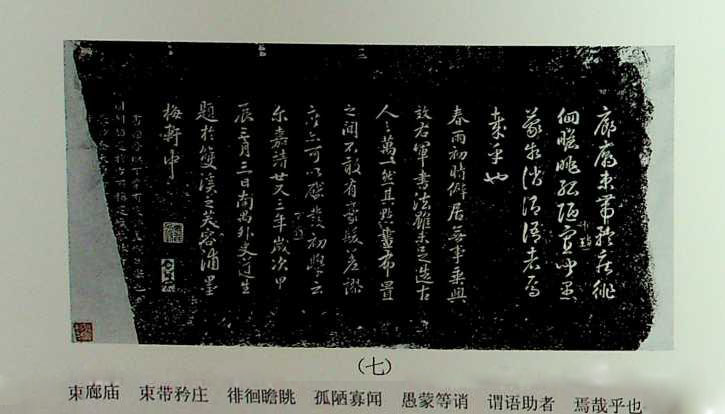 廊廟束帶矜莊徘
徊瞻眺孤陋寡聞愚
蒙等誚謂語助者焉
哉乎也
春雨初晴僻居無事乘興
效右軍書法雖未足造古
人之萬一然其點畫布置
之間不敢有毫髮差謬
亦可以啟發初學云
尔嘉靖廿又三年歲次甲
辰三月三日南禺外史道生
題於雙溪之芙蓉浦墨
梅軒中
(七)
束廊庙 束带矜庄 徘徊瞻眺 孤陋寡闻 愚蒙等诮 谓语助者 焉哉乎也